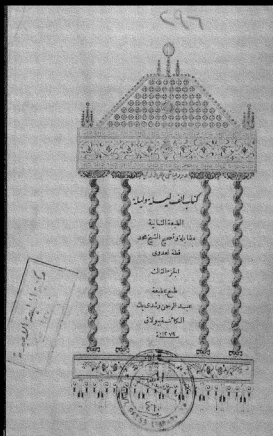 ٢٩٦
كتاب ألف ليلة وليلة
الطبعة الثانية
مقابلة وتصحيح الشيخ محمد
قطة العدوي
الجزء الثالث
طبع بمطبعة
عبد الرحمن رشدي بك
الكائنة ببولاق
١٢٧٩